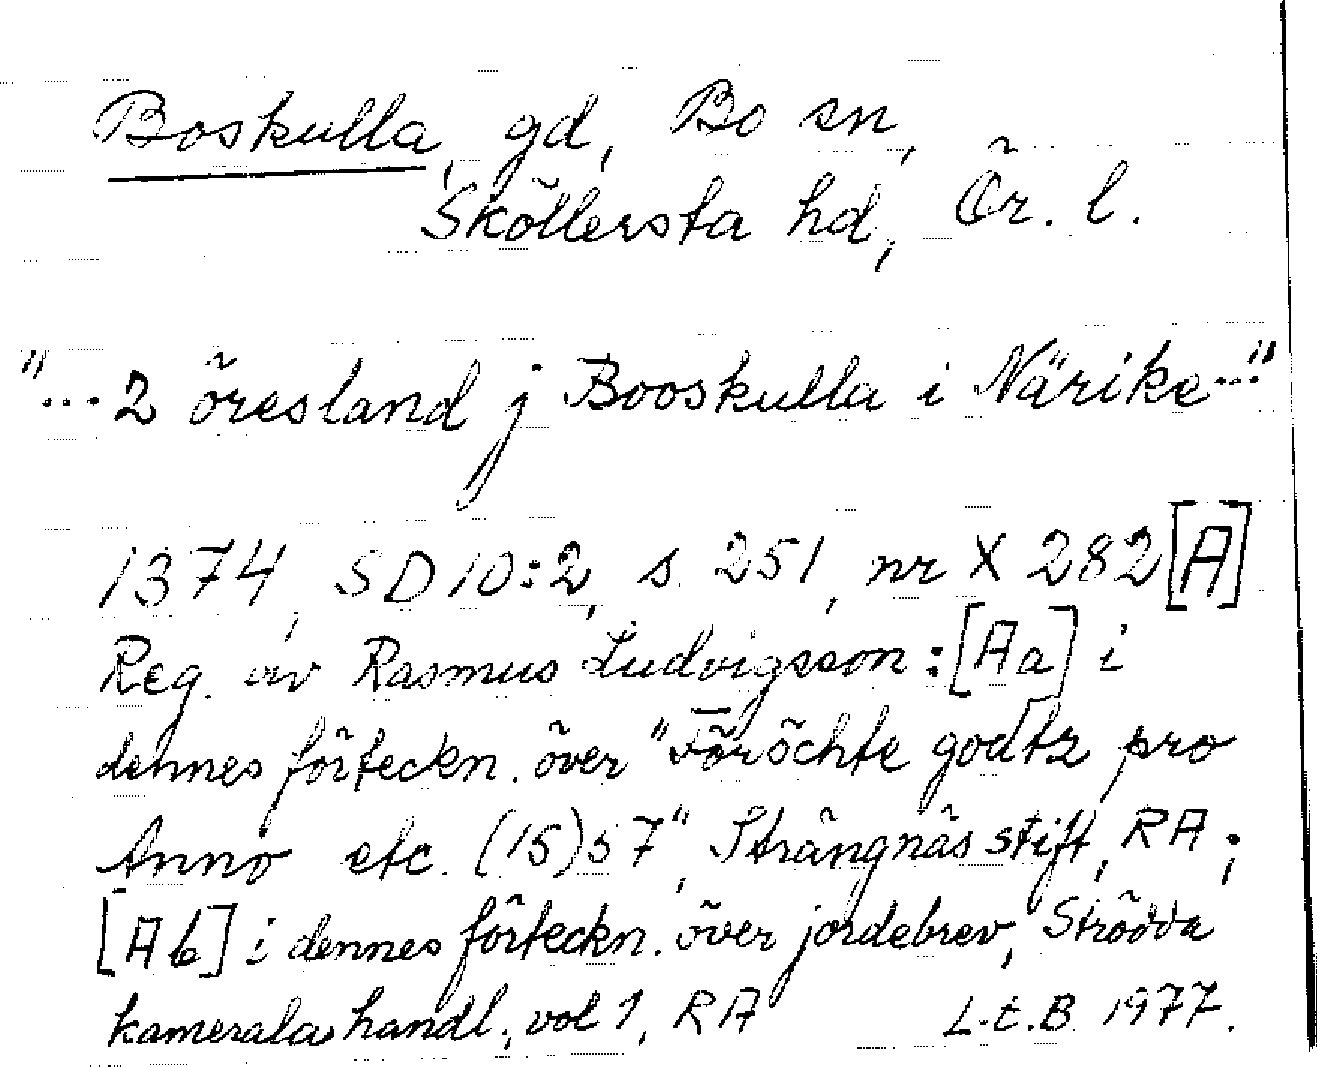 Boskulla, gd, Bo sn,
Sköllersta hd, Ör. l.
"... 2 öresland j Booskulla i Närike..."
1374, SD 10:2, s. 251, nr X 282 [A]
Reg. av Rasmus Ludvigsson: [Aa] i
dennes förteckn. över "Föröchte godtz pro
Anno etc. (15)57", Strängnäs stift, RA;
[Ab] i dennes förteckn. över jordebrev, Strödda
kamerala handl., vol 1, RA L.E.B. 1977.